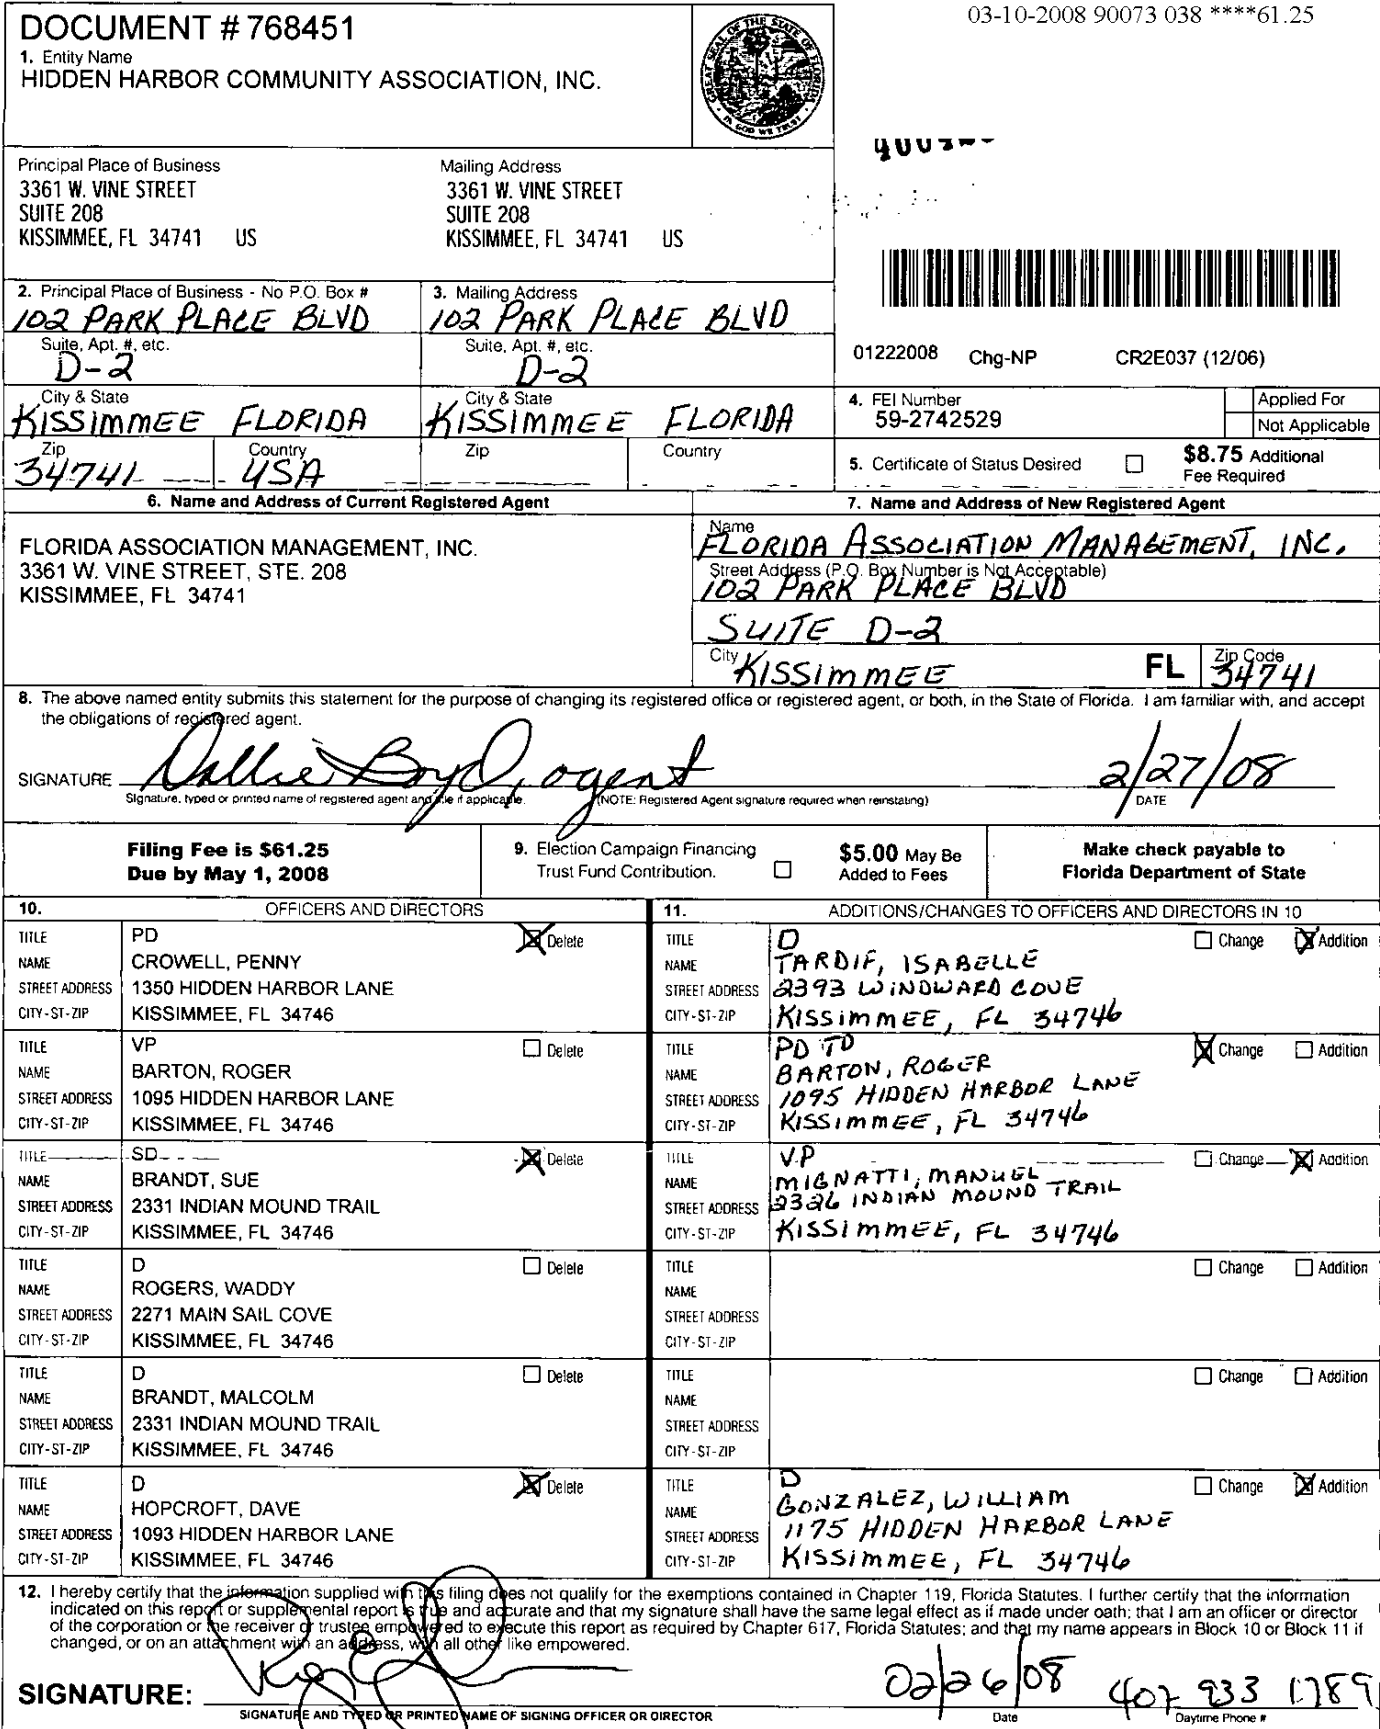 DOCUMENT # 768451
1. Entity Name
HIDDEN HARBOR COMMUNITY ASSOCIATION, INC.
03-10-2008 90073 038 ****61.25
Principal Place of Business
3361 W. VINE STREET
SUITE 208
KISSIMMEE, FL 34741 US
Mailing Address
3361 W. VINE STREET
SUITE 208
KISSIMMEE, FL 34741 US
2. Principal Place of Business - No P.O. Box #
102 PARK PLACE BLVD
Suite, Apt. #, etc.
D-2
City & State
KISSIMMEE FLORIDA
Zip
34741
Country
USA
3. Mailing Address
102 PARK PLACE BLVD
Suite, Apt. #, etc.
D-2
City & State
KISSIMMEE FLORIDA
Zip
Country
01222008 Chg-NP CR2E037 (12/06)
4. FEI Number
59-2742529
Applied For
Not Applicable
5. Certificate of Status Desired
$8.75 Additional
Fee Required
6. Name and Address of Current Registered Agent
FLORIDA ASSOCIATION MANAGEMENT, INC.
3361 W. VINE STREET, STE. 208
KISSIMMEE, FL 34741
7. Name and Address of New Registered Agent
Name
FLORIDA ASSOCIATION MANAGEMENT, INC.
Street Address (P.O. Box Number is Not Acceptable)
102 PARK PLACE BLVD
SUITE D-2
City KISSIMMEE FL Zip Code 34741
8. The above named entity submits this statement for the purpose of changing its registered office or registered agent, or both, in the State of Florida. I am familiar with, and accept
the obligations of registered agent.
SIGNATURE Dallie Boyd, agent 2/27/08
Signature, typed or printed name of registered agent and title if applicable. (NOTE: Registered Agent signature required when reinstating) DATE
Filing Fee is $61.25
Due by May 1, 2008
9. Election Campaign Financing
Trust Fund Contribution.
$5.00 May Be
Added to Fees
Make check payable to
Florida Department of State
10. OFFICERS AND DIRECTORS
11. ADDITIONS/CHANGES TO OFFICERS AND DIRECTORS IN 10
TITLE PD Delete
NAME CROWELL, PENNY
STREET ADDRESS 1350 HIDDEN HARBOR LANE
CITY-ST-ZIP KISSIMMEE, FL 34746
TITLE D Change Addition
NAME TARDIF, ISABELLE
STREET ADDRESS 2393 WINDWARD COVE
CITY-ST-ZIP KISSIMMEE, FL 34746
TITLE VP Delete
NAME BARTON, ROGER
STREET ADDRESS 1095 HIDDEN HARBOR LANE
CITY-ST-ZIP KISSIMMEE, FL 34746
TITLE PD TD Change Addition
NAME BARTON, ROGER
STREET ADDRESS 1095 HIDDEN HARBOR LANE
CITY-ST-ZIP KISSIMMEE, FL 34746
TITLE SD Delete
NAME BRANDT, SUE
STREET ADDRESS 2331 INDIAN MOUND TRAIL
CITY-ST-ZIP KISSIMMEE, FL 34746
TITLE V.P Change Addition
NAME MIGNATTI, MANUEL
STREET ADDRESS 2326 INDIAN MOUND TRAIL
CITY-ST-ZIP KISSIMMEE, FL 34746
TITLE D Delete
NAME ROGERS, WADDY
STREET ADDRESS 2271 MAIN SAIL COVE
CITY-ST-ZIP KISSIMMEE, FL 34746
TITLE Change Addition
NAME
STREET ADDRESS
CITY-ST-ZIP
TITLE D Delete
NAME BRANDT, MALCOLM
STREET ADDRESS 2331 INDIAN MOUND TRAIL
CITY-ST-ZIP KISSIMMEE, FL 34746
TITLE Change Addition
NAME
STREET ADDRESS
CITY-ST-ZIP
TITLE D Delete
NAME HOPCROFT, DAVE
STREET ADDRESS 1093 HIDDEN HARBOR LANE
CITY-ST-ZIP KISSIMMEE, FL 34746
TITLE D Change Addition
NAME GONZALEZ, WILLIAM
STREET ADDRESS 1175 HIDDEN HARBOR LANE
CITY-ST-ZIP KISSIMMEE, FL 34746
12. I hereby certify that the information supplied with this filing does not qualify for the exemptions contained in Chapter 119, Florida Statutes. I further certify that the information
indicated on this report or supplemental report is true and accurate and that my signature shall have the same legal effect as if made under oath; that I am an officer or director
of the corporation or the receiver or trustee empowered to execute this report as required by Chapter 617, Florida Statutes; and that my name appears in Block 10 or Block 11 if
changed, or on an attachment with an address, with all other like empowered.
SIGNATURE: 02/26/08 407 933 1789
SIGNATURE AND TYPED OR PRINTED NAME OF SIGNING OFFICER OR DIRECTOR Date Daytime Phone #